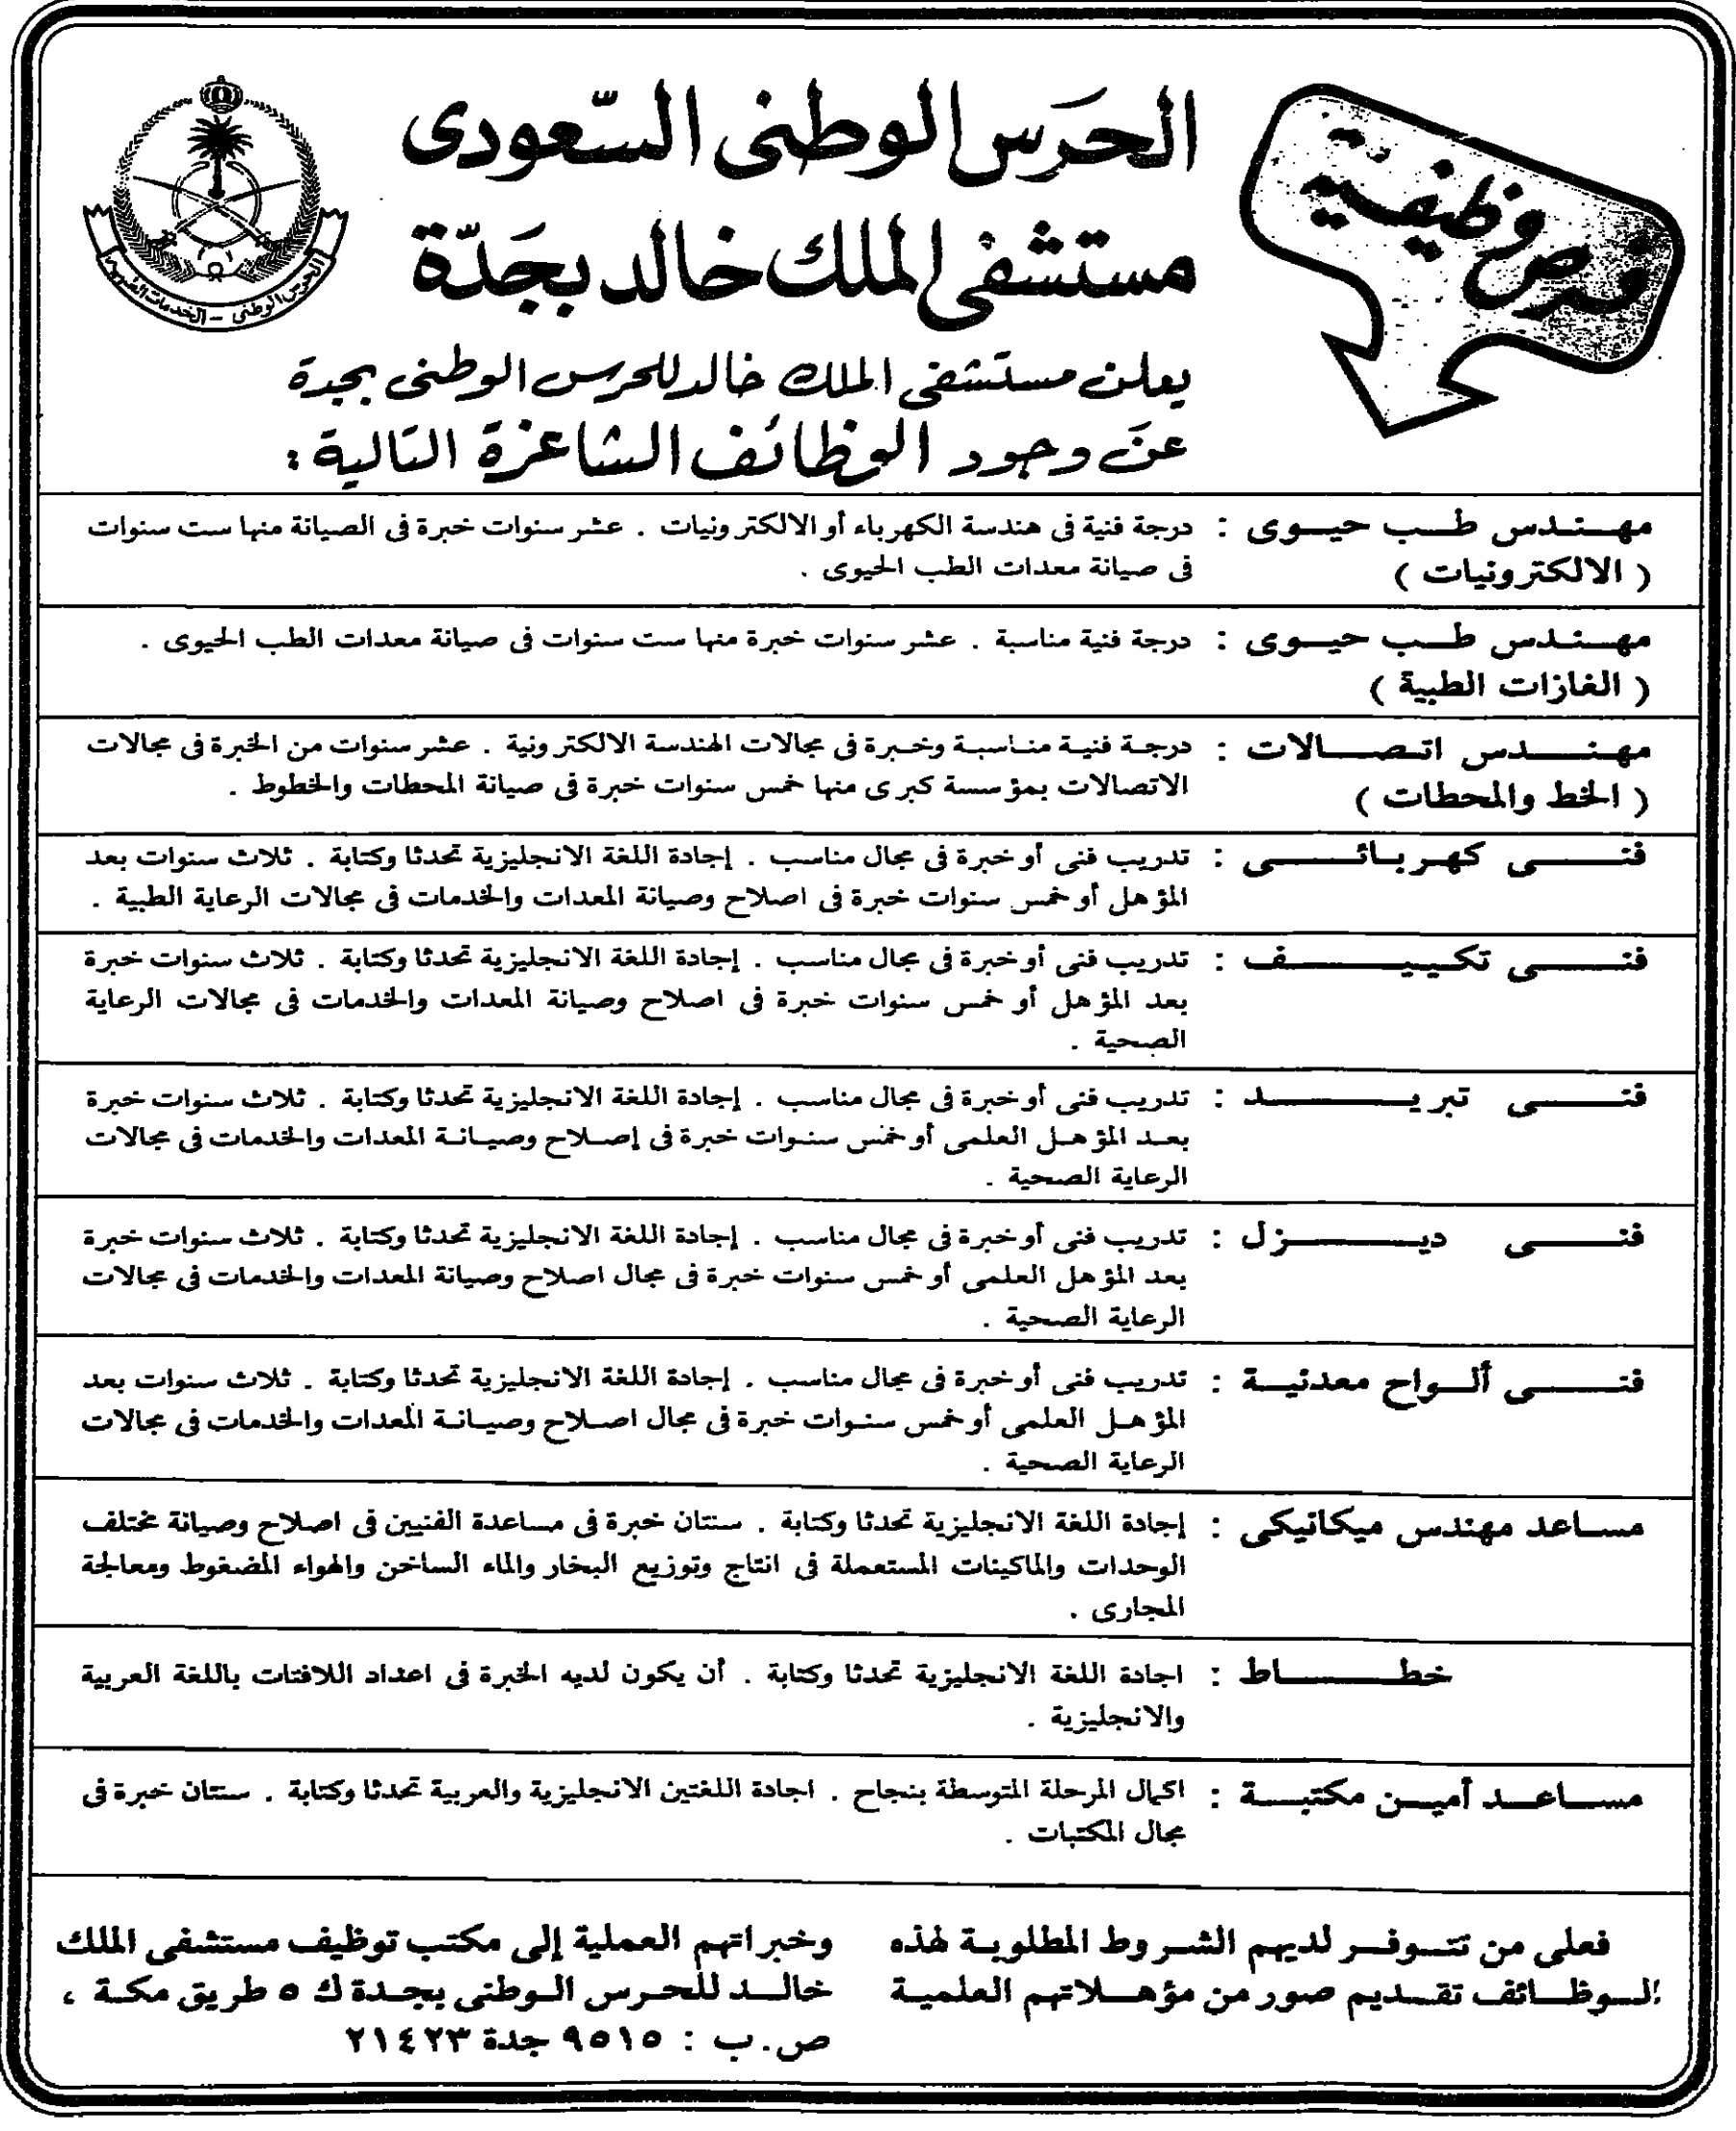 فرص وظيفية
الحَرَس الوطنى السّعودى
مستشفى الملك خالد بجَدّة
الحرس الوطنى - الخدمات
يعلن مستشفى الملك خالد للحرس الوطنى بجدة
عن وجود الوظائف الشاغرة التالية :
مهندس طب حيوى : درجة فنية فى هندسة الكهرباء أو الالكترونيات . عشر سنوات خبرة فى الصيانة منها ست سنوات
( الالكترونيات ) فى صيانة معدات الطب الحيوى .
مهندس طب حيوى : درجة فنية مناسبة . عشر سنوات خبرة منها ست سنوات فى صيانة معدات الطب الحيوى .
( الغازات الطبية )
مهندس اتصالات : درجة فنية مناسبة وخبرة فى مجالات الهندسة الالكترونية . عشر سنوات من الخبرة فى مجالات
( الخط والمحطات ) الاتصالات بمؤسسة كبرى منها خمس سنوات خبرة فى صيانة المحطات والخطوط .
فنى كهربائى : تدريب فنى أو خبرة فى مجال مناسب . إجادة اللغة الانجليزية تحدثا وكتابة . ثلاث سنوات بعد
المؤهل أو خمس سنوات خبرة فى اصلاح وصيانة المعدات والخدمات فى مجالات الرعاية الطبية .
فنى تكييف : تدريب فنى أو خبرة فى مجال مناسب . إجادة اللغة الانجليزية تحدثا وكتابة . ثلاث سنوات خبرة
بعد المؤهل أو خمس سنوات خبرة فى اصلاح وصيانة المعدات والخدمات فى مجالات الرعاية
الصحية .
فنى تبريد : تدريب فنى أو خبرة فى مجال مناسب . إجادة اللغة الانجليزية تحدثا وكتابة . ثلاث سنوات خبرة
بعد المؤهل العلمى أو خمس سنوات خبرة فى إصلاح وصيانة المعدات والخدمات فى مجالات
الرعاية الصحية .
فنى ديزل : تدريب فنى أو خبرة فى مجال مناسب . إجادة اللغة الانجليزية تحدثا وكتابة . ثلاث سنوات خبرة
بعد المؤهل العلمى أو خمس سنوات خبرة فى مجال اصلاح وصيانة المعدات والخدمات فى مجالات
الرعاية الصحية .
فنى ألواح معدنية : تدريب فنى أو خبرة فى مجال مناسب . إجادة اللغة الانجليزية تحدثا وكتابة . ثلاث سنوات بعد
المؤهل العلمى أو خمس سنوات خبرة فى مجال اصلاح وصيانة المعدات والخدمات فى مجالات
الرعاية الصحية .
مساعد مهندس ميكانيكى : إجادة اللغة الانجليزية تحدثا وكتابة . سنتان خبرة فى مساعدة الفنيين فى اصلاح وصيانة مختلف
الوحدات والماكينات المستعملة فى انتاج وتوزيع البخار والماء الساخن والهواء المضغوط ومعالجة
المجارى .
خطاط : اجادة اللغة الانجليزية تحدثا وكتابة . أن يكون لديه الخبرة فى اعداد اللافتات باللغة العربية
والانجليزية .
مساعد أمين مكتبة : اكمال المرحلة المتوسطة بنجاح . اجادة اللغتين الانجليزية والعربية تحدثا وكتابة . سنتان خبرة فى
مجال المكتبات .
فعلى من تتوفر لديهم الشروط المطلوبة لهذه
الوظائف تقديم صور من مؤهلاتهم العلمية
وخبراتهم العملية إلى مكتب توظيف مستشفى الملك
خالد للحرس الوطنى بجدة ك ٥ طريق مكة ،
ص.ب : ٩٥١٥ جدة ٢١٤٢٣